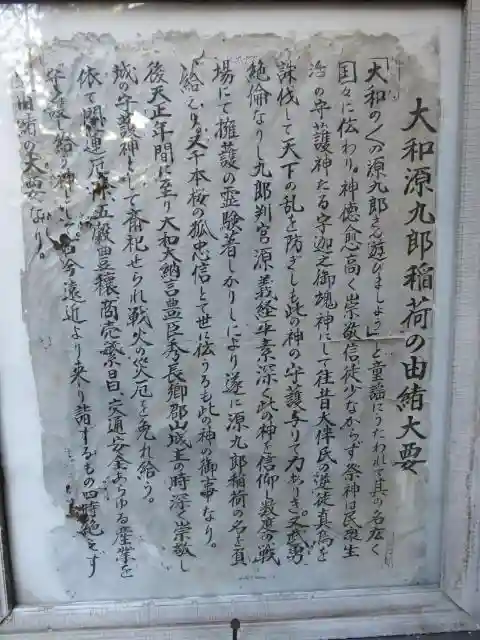 大和源九郎稲荷の由緒大要
「大和のくの源九郎さん遊びましょうよ」と童謡にうたわれて其の名広く
国々に伝わり。神徳愈高く崇敬信徒少なからず祭神は民衆生
活の守護神たる宇迦之御魂神にして往昔大伴氏の逆徒真鳥を
誅伐して天下の乱を防ぎしも此の神の守護与りて力ありき。又武勇
絶倫なりし九郎判官源義経平素深く此の神を信仰し数度の戦
場にて擁護の霊験著しかりしにより遂に源九郎稲荷の名を頁
給えり。又千本桜の狐忠信とて世に伝うるも此の神の御事なり。
後天正年間に至り大和大納言豊臣秀長卿郡山城主の時深く崇敬し
城の守護神として斎祀せられ戦火の災厄を免れ給う。
依て開運厄除五穀豊穣商売繁昌交通安全あらゆる産業を
守護し給う神として古今遠近より来り詣するもの四時絶えず
由緒の大要なり。